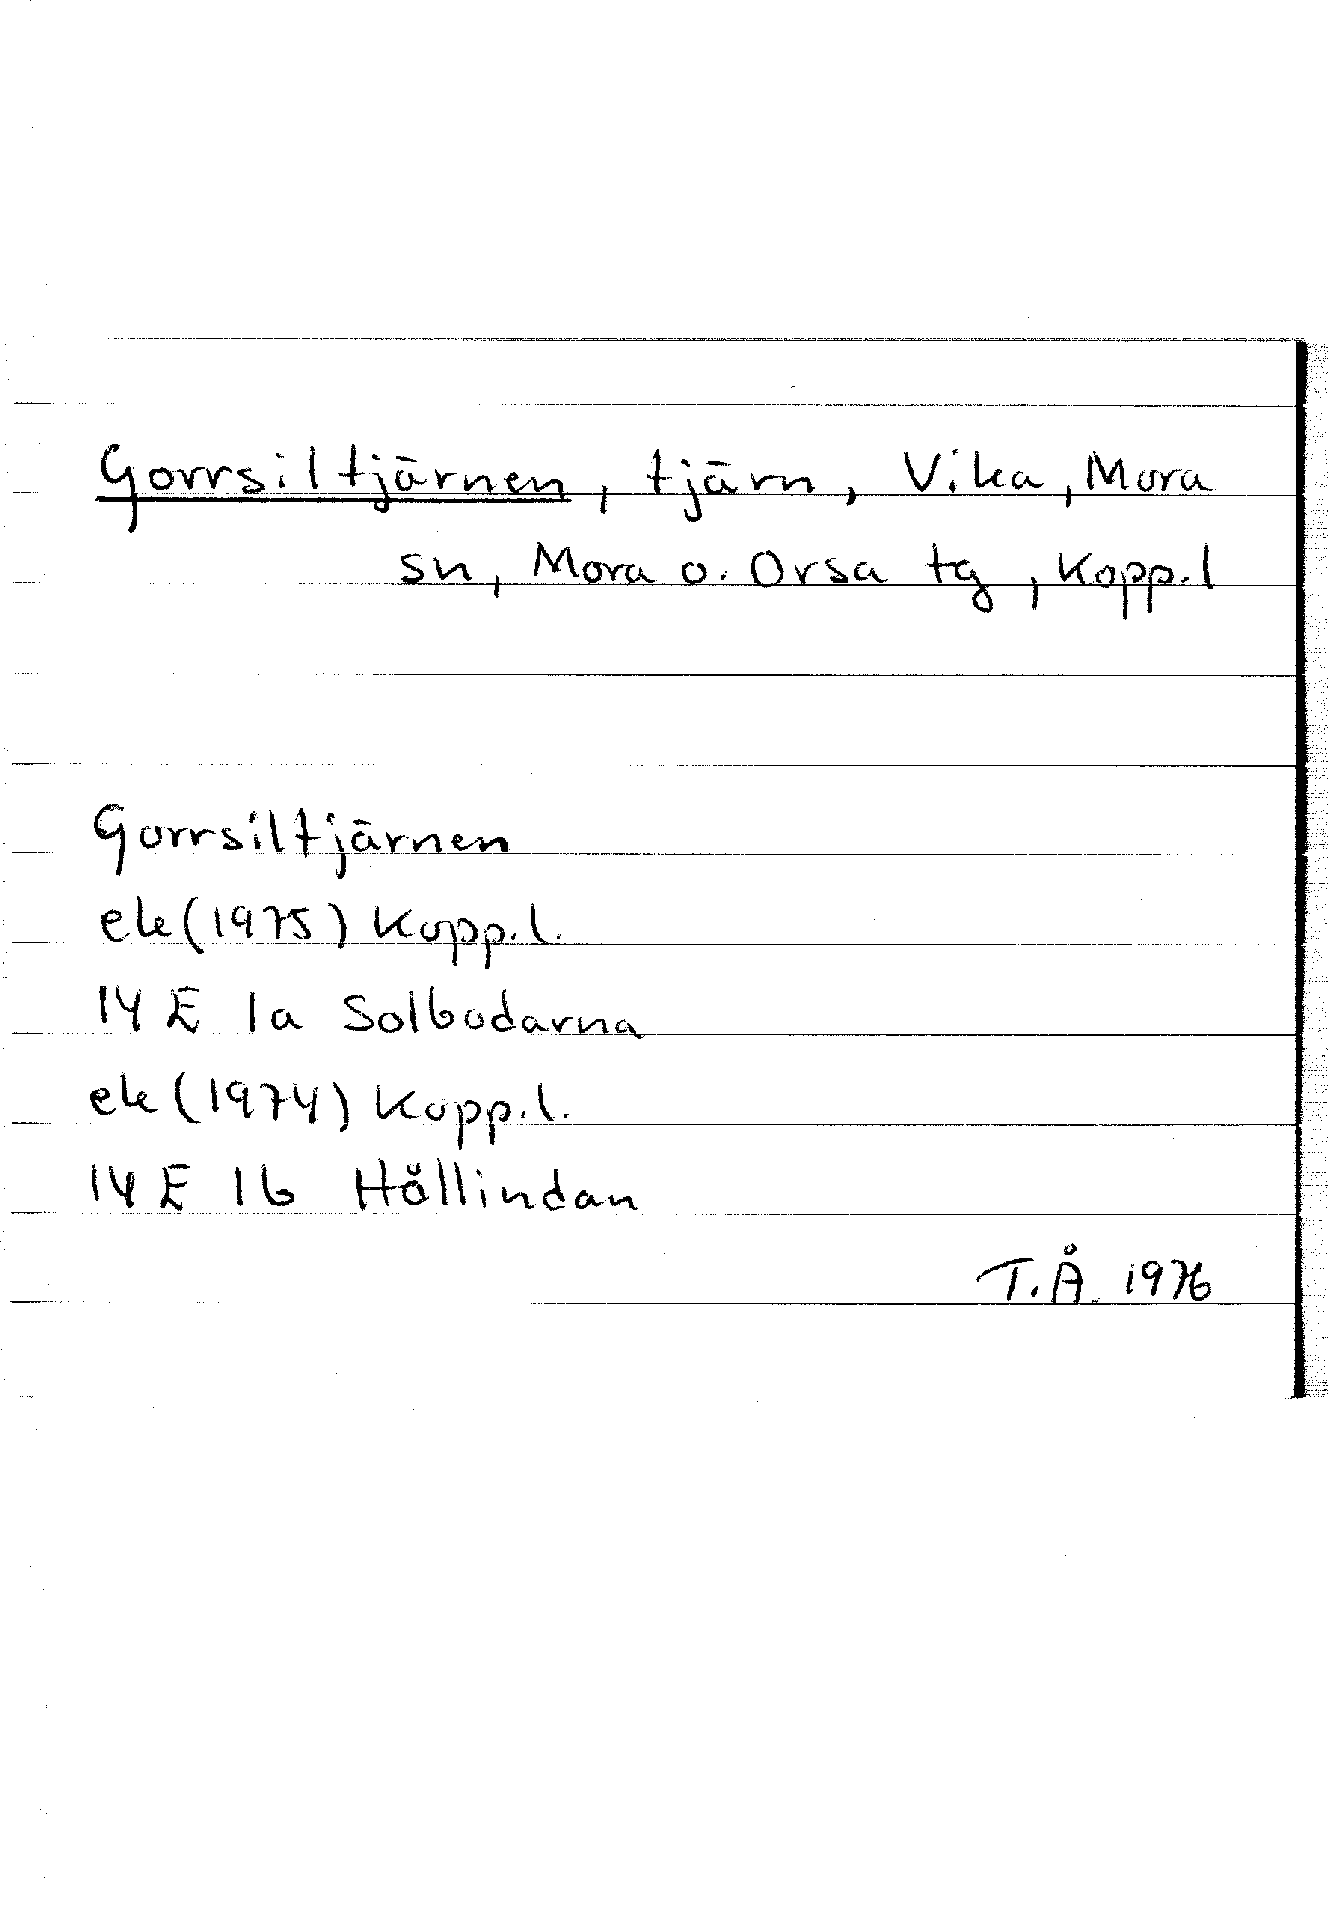 Gorrsiltjärnen, tjärn, Vika, Mora
sn, Mora o. Orsa tg, Kopp.l
Gorrsiltjärnen
ek (1975) Kopp.l.
14 E 1a Solbodarna
ek (1974) Kopp.l.
14 E 1b Hållindan
T.Å. 1976